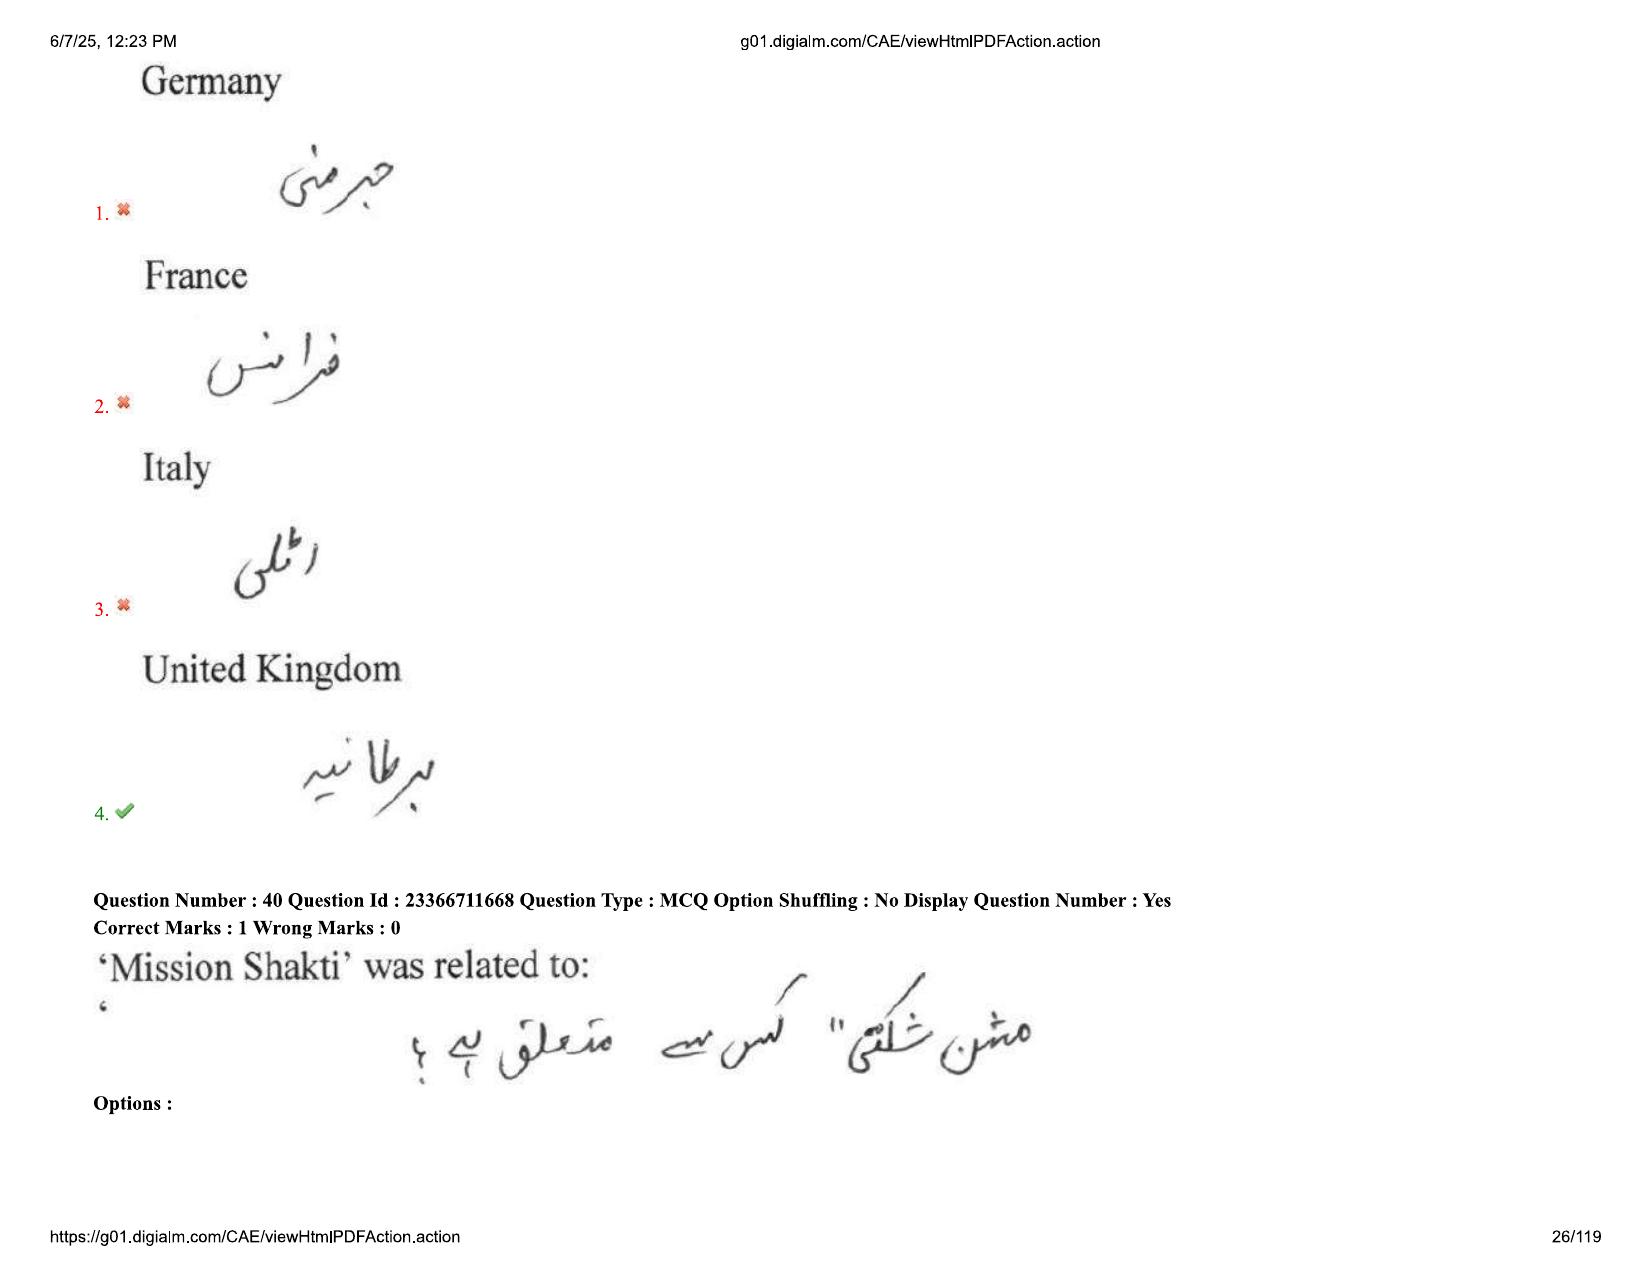 6/7/25, 12:23 PM
g01.digialm.com/CAE/viewHtmlPDFAction.action
Germany
جرمنی
1.
France
فرانس
2.
Italy
اٹلی
3.
United Kingdom
برطانیہ
4.
Question Number : 40 Question Id : 23366711668 Question Type : MCQ Option Shuffling : No Display Question Number : Yes
Correct Marks : 1 Wrong Marks : 0
‘Mission Shakti’ was related to:
‘
مشن شکتی" کس سے متعلق ہے ؟
Options :
https://g01.digialm.com/CAE/viewHtmlPDFAction.action
26/119